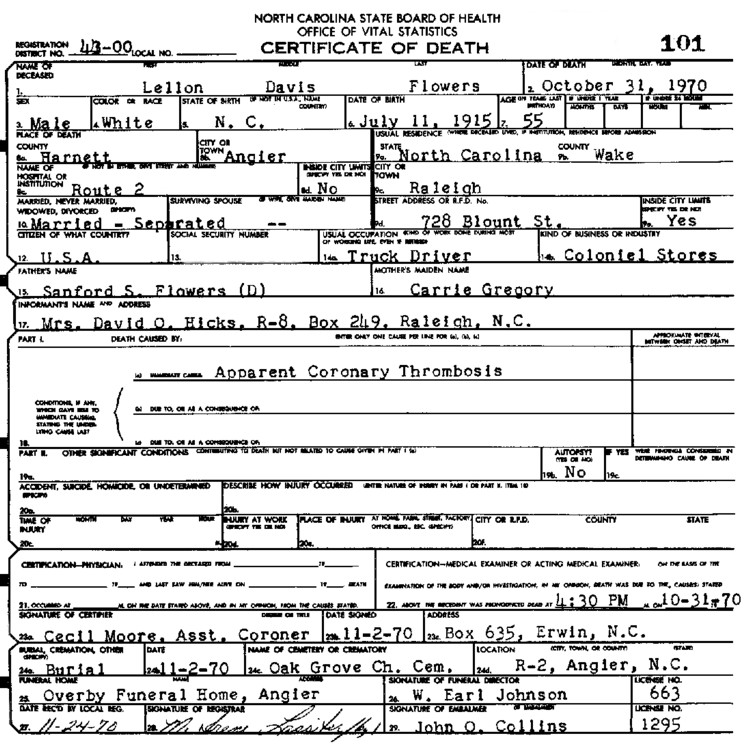 NORTH CAROLINA STATE BOARD OF HEALTH
OFFICE OF VITAL STATISTICS
CERTIFICATE OF DEATH 101
REGISTRATION DISTRICT NO. 43-00 LOCAL NO.
NAME OF DECEASED FIRST MIDDLE LAST DATE OF DEATH MONTH, DAY, YEAR
1. Lellon Davis Flowers 2. October 31, 1970
SEX COLOR OR RACE STATE OF BIRTH (IF NOT IN U.S.A., NAME COUNTRY) DATE OF BIRTH AGE (IN YEARS LAST BIRTHDAY) IF UNDER 1 YEAR MONTHS DAYS IF UNDER 24 HOURS HOURS MIN.
3. Male 4. White 5. N. C. 6. July 11, 1915 7. 55
PLACE OF DEATH USUAL RESIDENCE (WHERE DECEASED LIVED, IF INSTITUTION, RESIDENCE BEFORE ADMISSION
COUNTY CITY OR TOWN STATE COUNTY
8a. Harnett 8b. Angier 9a. North Carolina 9b. Wake
NAME OF HOSPITAL OR INSTITUTION (IF NOT IN EITHER, GIVE STREET AND NUMBER) INSIDE CITY LIMITS (SPECIFY YES OR NO) CITY OR TOWN
8c. Route 2 8d. No 9c. Raleigh
MARRIED, NEVER MARRIED, WIDOWED, DIVORCED (SPECIFY) SURVIVING SPOUSE (IF WIFE, GIVE MAIDEN NAME) STREET ADDRESS OR R.F.D. No. INSIDE CITY LIMITS (SPECIFY YES OR NO)
10. Married - Separated -- 9d. 728 Blount St. 9e. Yes
CITIZEN OF WHAT COUNTRY? SOCIAL SECURITY NUMBER USUAL OCCUPATION (KIND OF WORK DONE DURING MOST OF WORKING LIFE, EVEN IF RETIRED) KIND OF BUSINESS OR INDUSTRY
12. U.S.A. 13. 14a. Truck Driver 14b. Coloniel Stores
FATHER'S NAME MOTHER'S MAIDEN NAME
15. Sanford S. Flowers (D) 16. Carrie Gregory
INFORMANT'S NAME AND ADDRESS
17. Mrs. David O. Hicks, R-8, Box 249, Raleigh, N.C.
PART I. DEATH CAUSED BY: ENTER ONLY ONE CAUSE PER LINE FOR (a), (b), (c) APPROXIMATE INTERVAL BETWEEN ONSET AND DEATH
(a) IMMEDIATE CAUSE Apparent Coronary Thrombosis
CONDITIONS, IF ANY, WHICH GAVE RISE TO IMMEDIATE CAUSE(a), STATING THE UNDERLYING CAUSE LAST
(b) DUE TO, OR AS A CONSEQUENCE OF,
18. (c) DUE TO, OR AS A CONSEQUENCE OF,
PART II. OTHER SIGNIFICANT CONDITIONS CONTRIBUTING TO DEATH BUT NOT RELATED TO CAUSE GIVEN IN PART I (a) AUTOPSY? (YES OR NO) IF YES WERE FINDINGS CONSIDERED IN DETERMINING CAUSE OF DEATH
19a. 19b. No 19c.
ACCIDENT, SUICIDE, HOMICIDE, OR UNDETERMINED (SPECIFY) DESCRIBE HOW INJURY OCCURRED (ENTER NATURE OF INJURY IN PART I OR PART II, ITEM 18)
20a. 20b.
TIME OF INJURY MONTH DAY YEAR HOUR INJURY AT WORK (SPECIFY YES OR NO) PLACE OF INJURY AT HOME, FARM, STREET, FACTORY, OFFICE BLDG., ETC. (SPECIFY) CITY OR R.F.D. COUNTY STATE
20c. 20d. 20e. 20f.
CERTIFICATION—PHYSICIAN: I ATTENDED THE DECEASED FROM 19 CERTIFICATION—MEDICAL EXAMINER OR ACTING MEDICAL EXAMINER: ON THE BASIS OF THE
TO 19 AND LAST SAW HIM/HER ALIVE ON 19 DEATH EXAMINATION OF THE BODY AND/OR INVESTIGATION, IN MY OPINION, DEATH WAS DUE TO THE CAUSES STATED
21. OCCURRED AT M. ON THE DATE STATED ABOVE, AND IN MY OPINION, FROM THE CAUSES STATED. 22. ABOVE THE DECEDENT WAS PRONOUNCED DEAD AT 4:30 PM M. ON 10-31-70
SIGNATURE OF CERTIFIER DEGREE OR TITLE DATE SIGNED ADDRESS
23a. Cecil Moore, Asst. Coroner 23b. 11-2-70 23c. Box 635, Erwin, N.C.
BURIAL, CREMATION, OTHER (SPECIFY) DATE NAME OF CEMETERY OR CREMATORY LOCATION (CITY, TOWN, OR COUNTY) (STATE)
24a. Burial 24b. 11-2-70 24c. Oak Grove Ch. Cem. 24d. R-2, Angier, N.C.
FUNERAL HOME NAME ADDRESS SIGNATURE OF FUNERAL DIRECTOR LICENSE NO.
25. Overby Funeral Home, Angier 26. W. Earl Johnson 663
DATE REC'D BY LOCAL REG. SIGNATURE OF REGISTRAR SIGNATURE OF EMBALMER IF EMBALMED LICENSE NO.
27. 11-24-70 28. M. Irene Lassiter 29. John O. Collins 1295